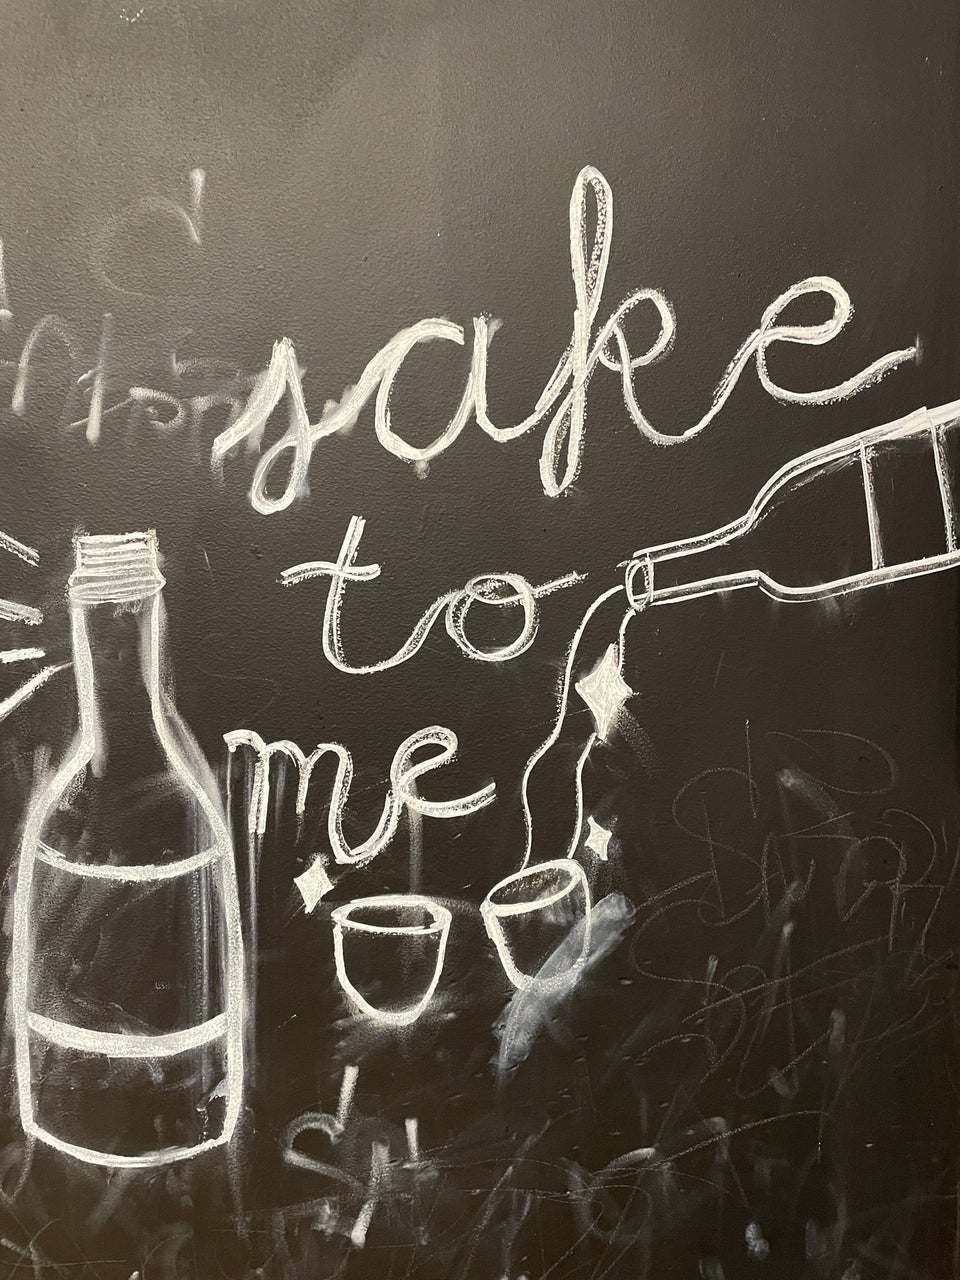 sake
to
me